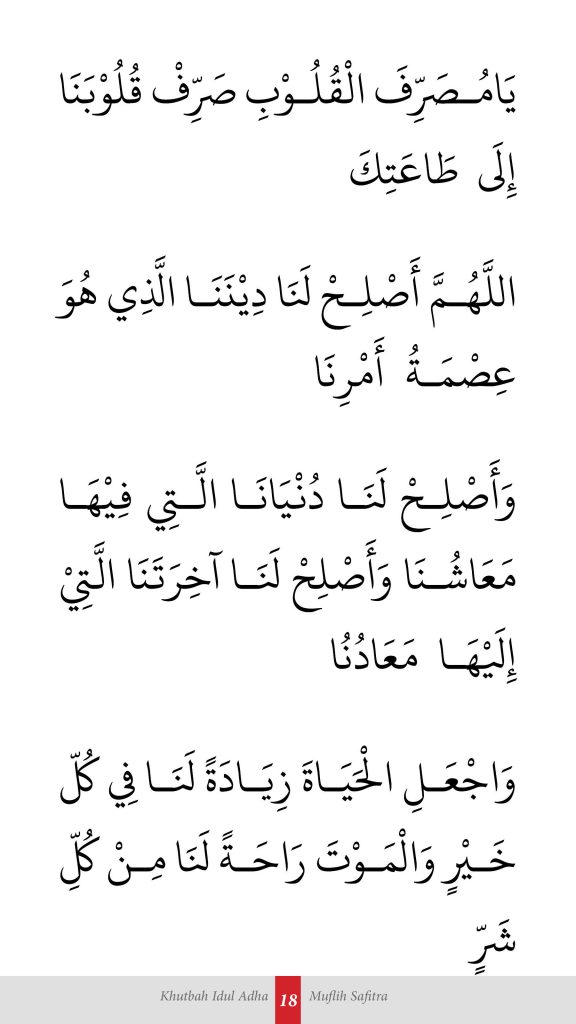 يَامُصَرِّفَ الْقُلُوْبِ صَرِّفْ قُلُوْبَنَا
إِلَى طَاعَتِكَ
اللَّهُمَّ أَصْلِحْ لَنَا دِيْنَنَا الَّذِي هُوَ
عِصْمَةُ أَمْرِنَا
وَأَصْلِحْ لَنَا دُنْيَانَا الَّتِي فِيْهَا
مَعَاشُنَا وَأَصْلِحْ لَنَا آخِرَتَنَا الَّتِيْ
إِلَيْهَا مَعَادُنُا
وَاجْعَلِ الْحَيَاةَ زِيَادَةً لَنَا فِي كُلِّ
خَيْرٍ وَالْمَوْتَ رَاحَةً لَنَا مِنْ كُلِّ
شَرٍّ
Khutbah Idul Adha 18 Muflih Safitra